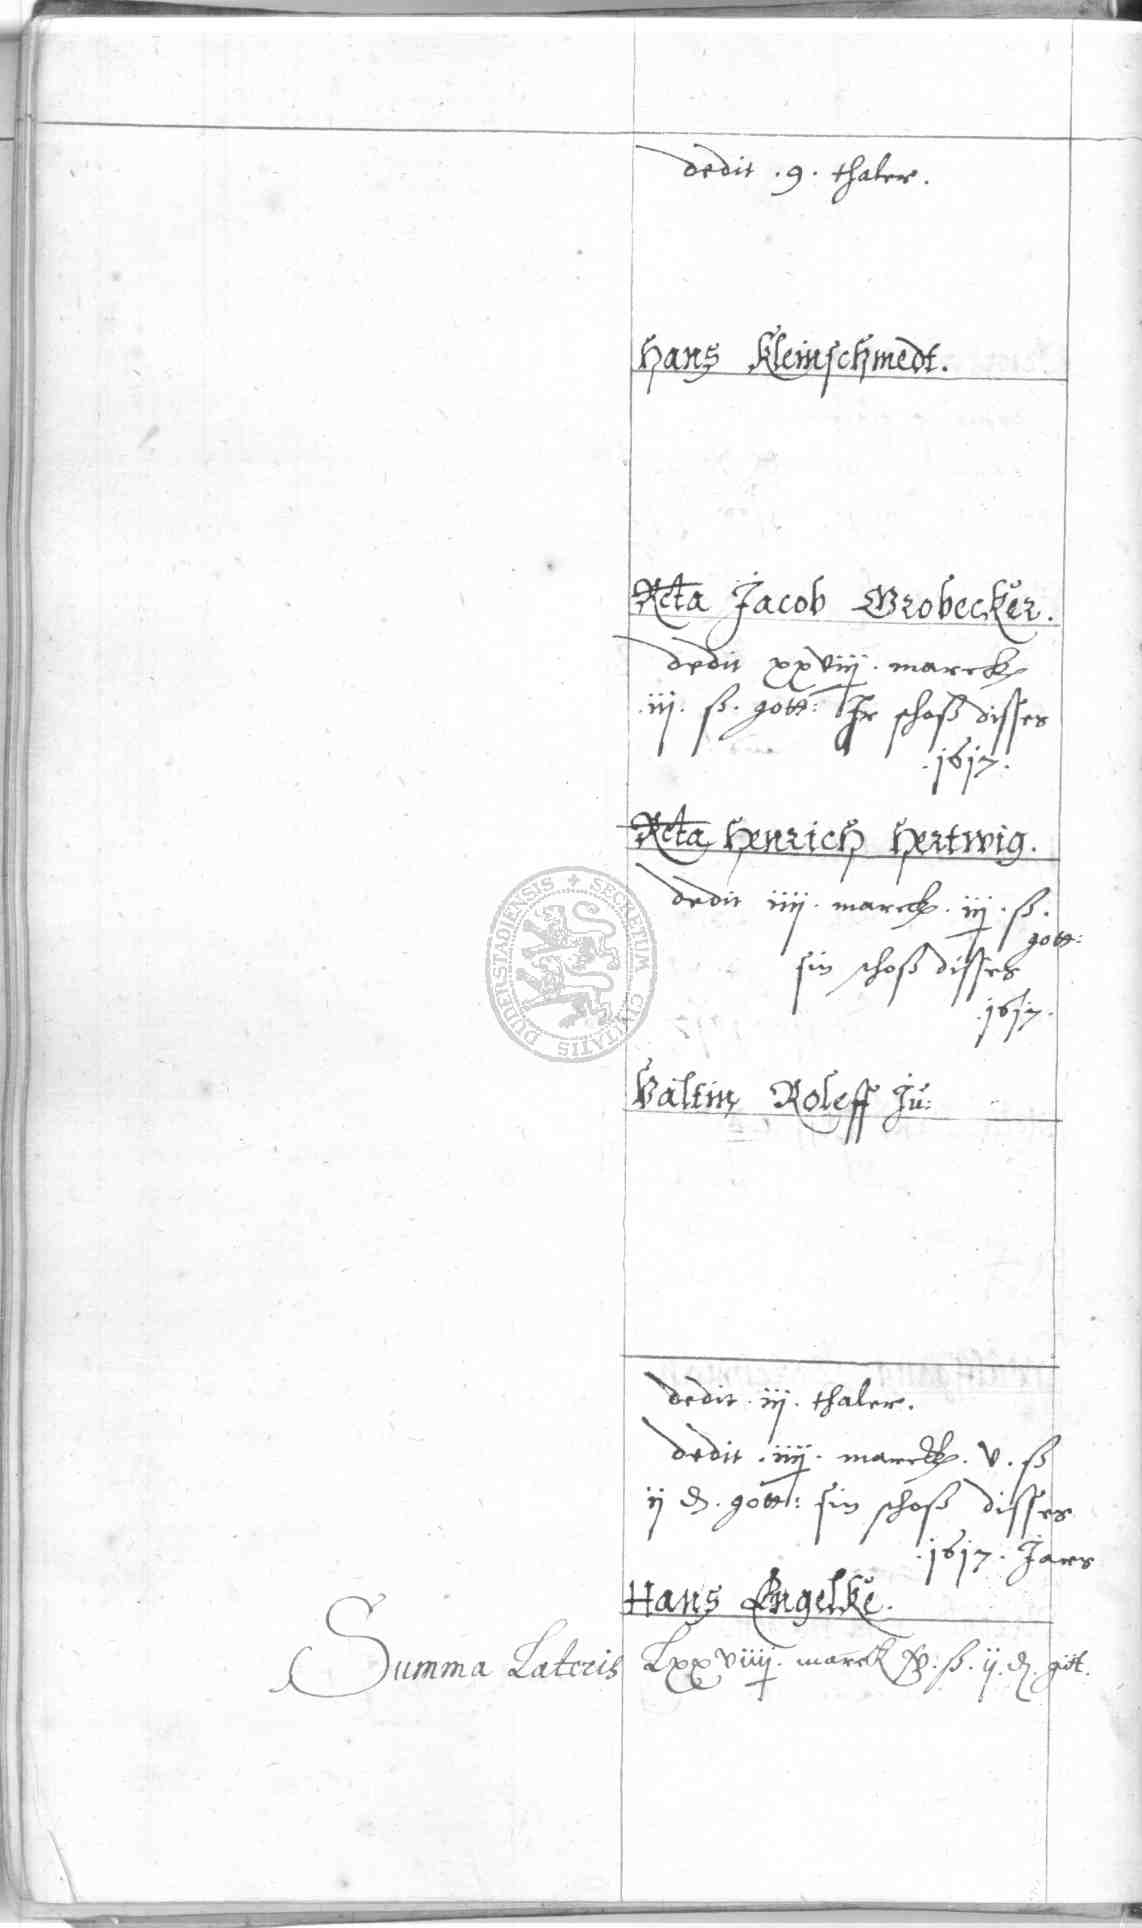 dedit .9. thaler.
Hans Kleinschmedt.
Rcta Jacob Grobecker.
dedit xxviiij. marck
.iij. ß. gott: Ir schoß disses
.1617.
Rcta Henrich Hertwig.
dedit iiij. marck. iij. ß.
gott:
sin schoß disses
.1617.
Valtin Roleff Ju:
dedit .iij. thaler.
dedit .iiij. marck. v. ß
ij ₰. gott: sin schoß disses
.1617. Jars
Hans Engelke.
Summa Lateris Lxxviiij. marck ß. ij. ₰. gott.
SECRETUM CIVITATIS DUDERSTADIENSIS